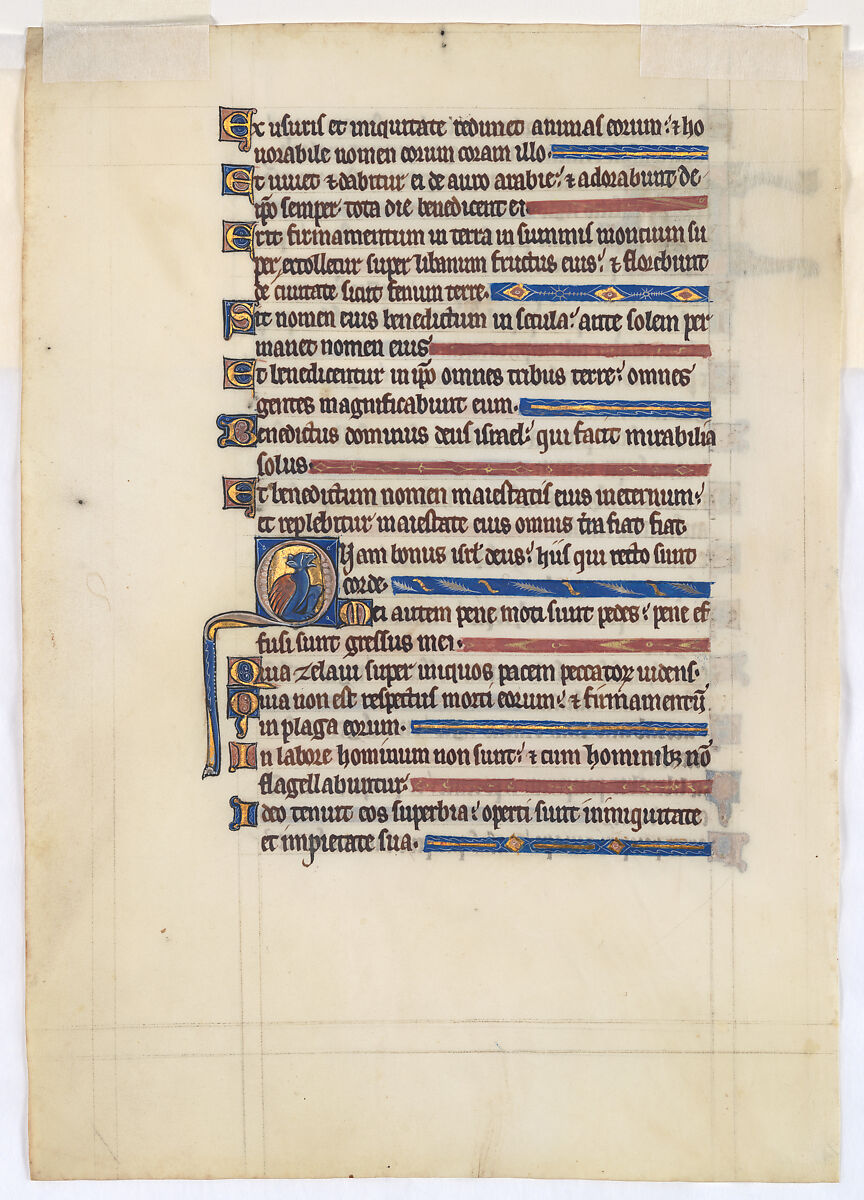 Ex usuris et iniquitate redimet animas eorum: ⁊ ho
norabile nomen eorum coram illo.
Et uiuet ⁊ dabitur ei de auro arabie: ⁊ adorabunt de
ip̄o semper tota die benedicent ei
Erit firmamentum in terra in summis moncium su
per extolletur super libanum fructus eius: ⁊ florebunt
de ciuitate sicut fenum terre.
Sit nomen eius benedictum in secula: ante solem per
manet nomen eius
Et benedicentur in ip̄o omnes tribus terre: omnes
gentes magnificabunt eum.
Benedictus dominus deus israel: qui facit mirabilia
solus.
Et benedictum nomen maiestatis eius in eternum:
et replebitur maiestate eius omnis t̄ra fiat fiat
Qvam bonus isrl̄ deus: hiis qui recto sunt
corde.
Mei autem pene moti sunt pedes: pene ef
fusi sunt gressus mei.
Quia zelaui super iniquos pacem peccatoꝝ uidens.
Quia non est respectus morti eorum: ⁊ firmamentū
in plaga eorum.
In labore hominum non sunt: ⁊ cum hominibꝫ nō
flagellabuntur.
Ideo tenuit eos superbia: operti sunt ininiquitate
et impietate sua.